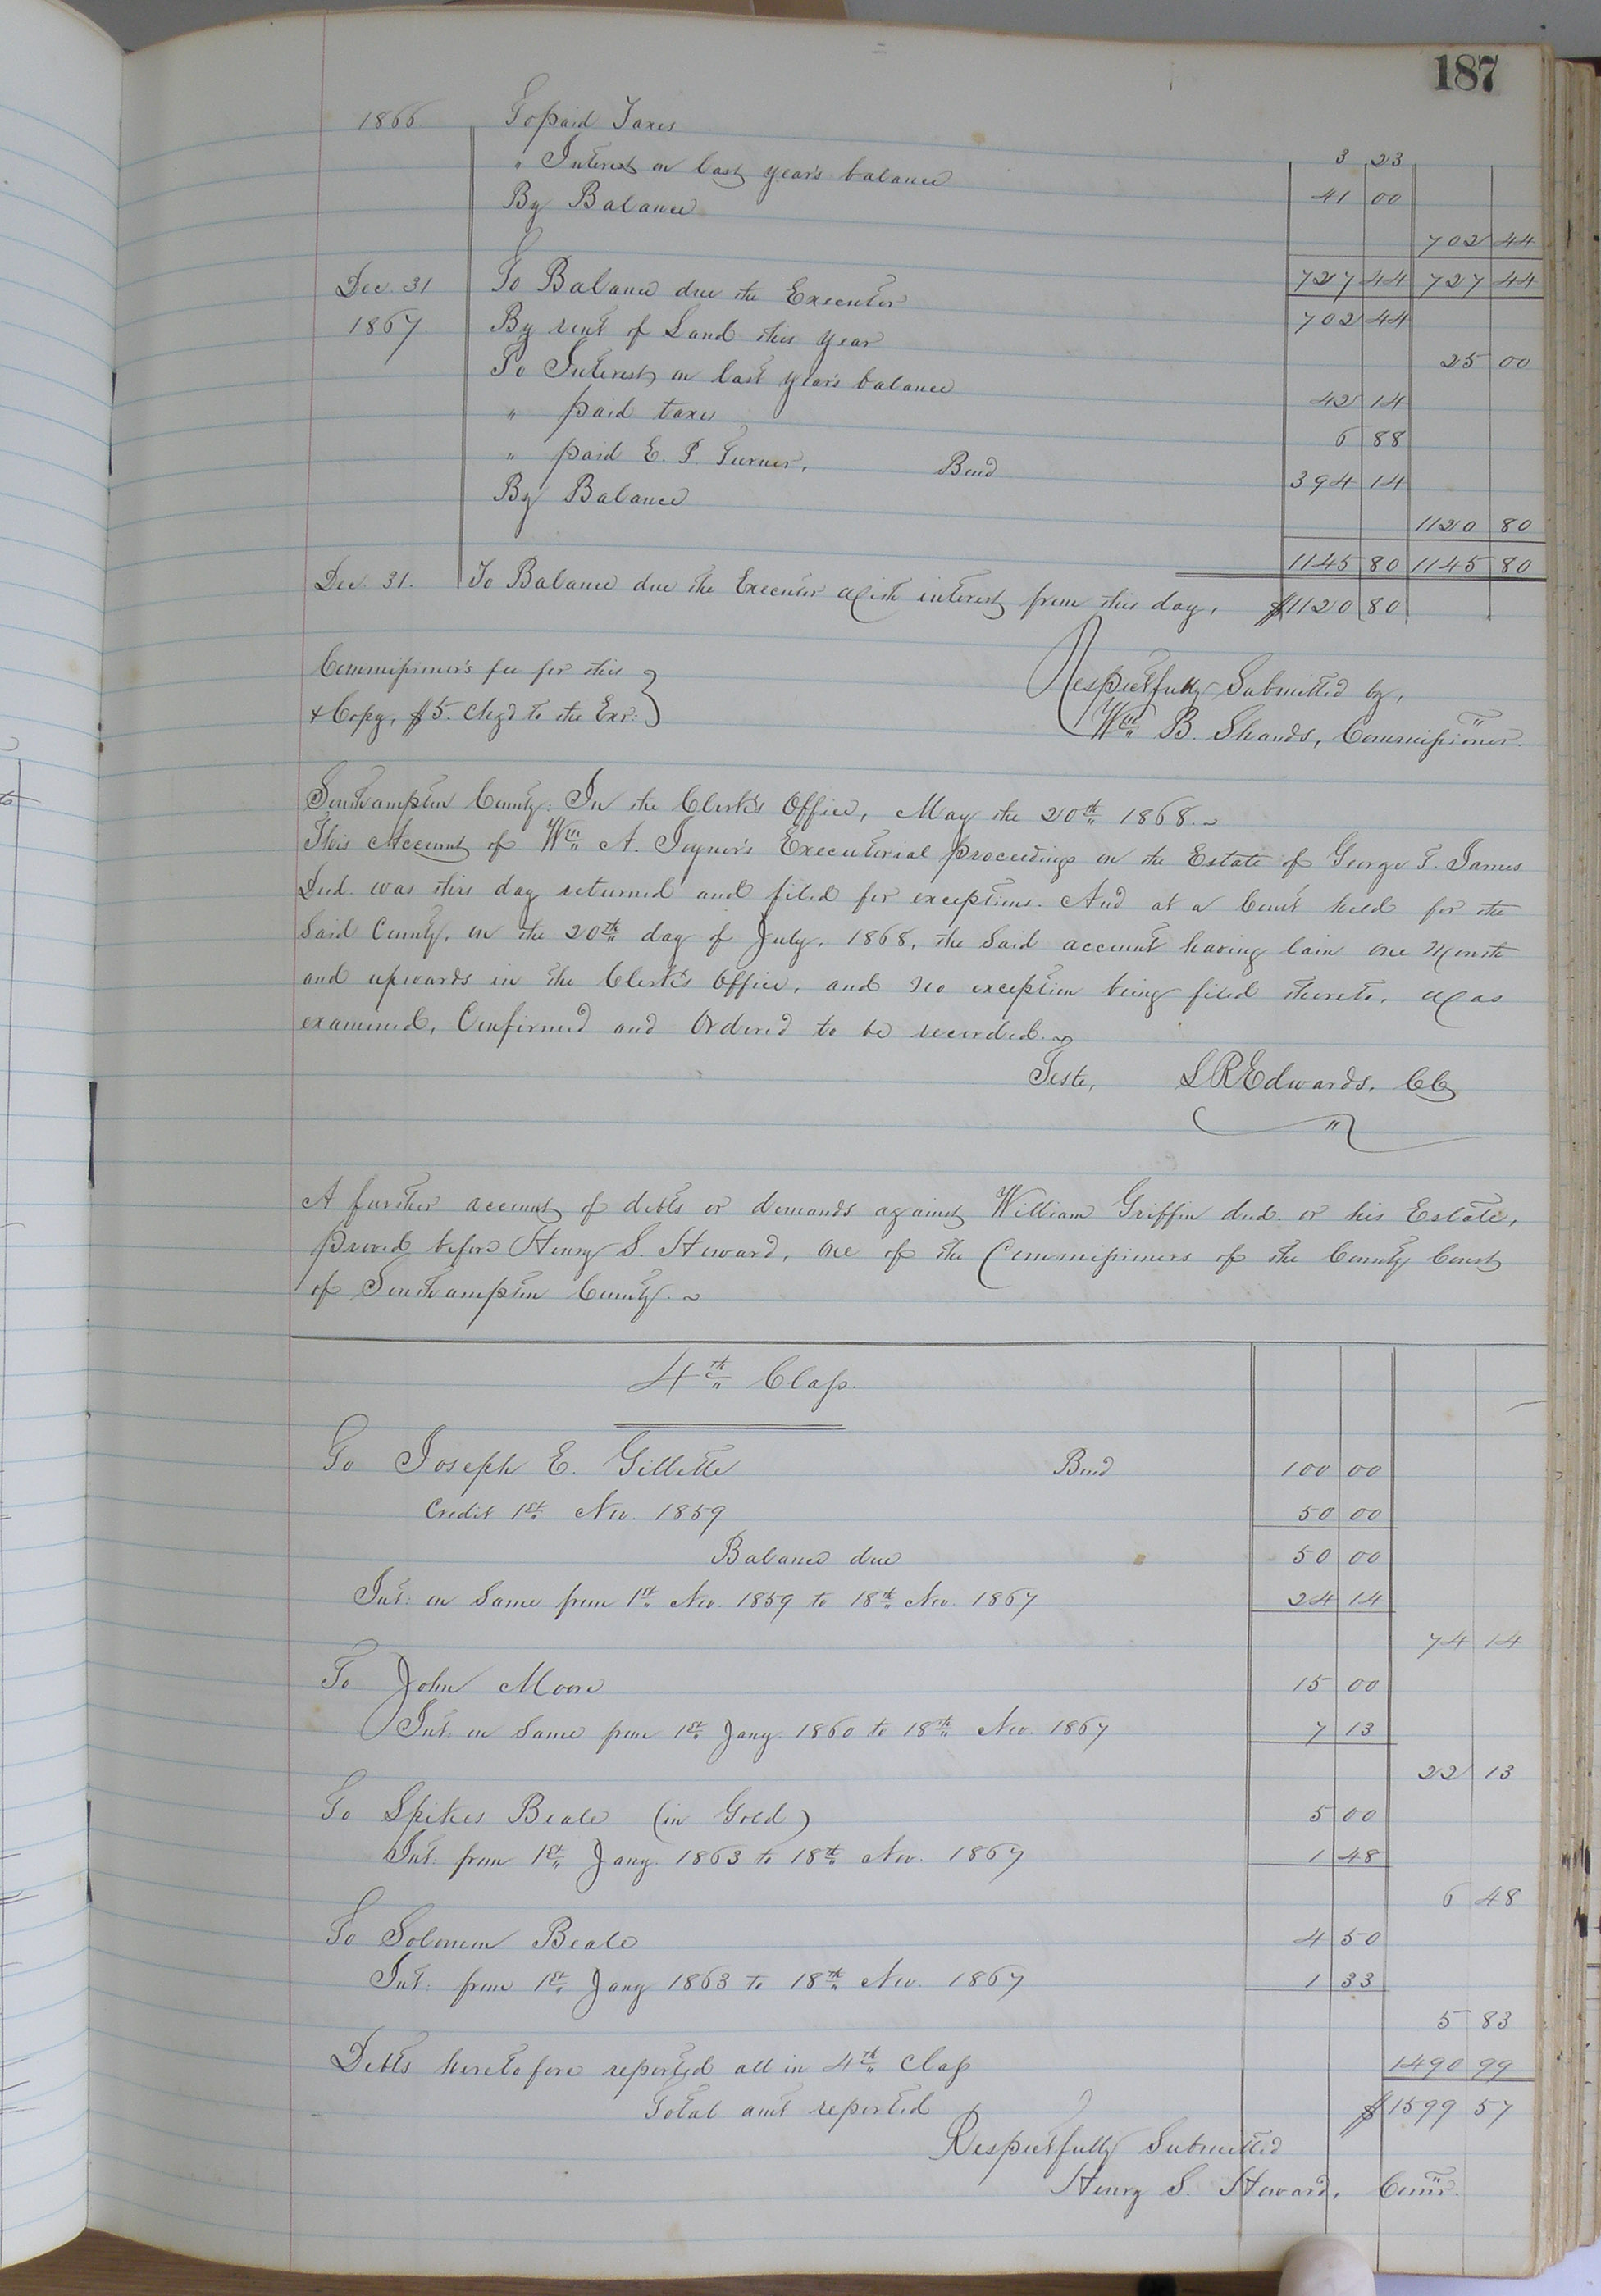 187
1866. To paid Taxes 3 23
" Interest on last year's balance 41 00
By Balance 702 44
727 44 727 44
Dec. 31 To Balance due the Executor 702 44
1867. By rent of Land this year 25 00
To Interest on last year's balance 42 14
" paid taxes 6 88
" paid E. P. Turner, Bond 394 14
By Balance 1120 80
1145 80 1145 80
Dec. 31. To Balance due the Executor with interest from this day, $1120 80
Commissioner's fee for this
& Copy, $5. chg'd to the Exr.
Respectfully Submitted by,
Wm B. Shands, Commissioner.
Southampton County: In the Clerk's Office, May the 20th 1868.~
This Account of Wm A. Joyner's Executorial proceedings on the Estate of George T. James
Decd. was this day returned and filed for exceptions. And at a Court held for the
Said County, on the 20th day of July, 1868, the said account having lain one Month
and upwards in the Clerk's Office, and no exception being filed thereto, was
examined, Confirmed and Ordered to be recorded.~
Teste, L R Edwards, CC
A further account of debts or demands against William Griffin decd. or his Estate,
proved before Henry S. Howard, one of the Commissioners of the County Court
of Southampton County.~
4th Class.
To Joseph E. Gillette Bond 100 00
Credit 1st Nov. 1859 50 00
Balance due 50 00
Int: on Same from 1st Nov. 1859 to 18th Nov. 1867 24 14
74 14
To John Moore 15 00
Int: on Same from 1st Jany. 1860 to 18th Nov. 1867 7 13
22 13
To Spikes Beale (in Gold) 5 00
Int: from 1st Jany. 1863 to 18th Nov. 1867 1 48
6 48
To Solomon Beale 4 50
Int: from 1st Jany 1863 to 18th Nov. 1867 1 33
5 83
Debts heretofore reported all in 4th Class 1490 99
Total amt reported $1599 57
Respectfully Submitted
Henry S. Howard, Comr.